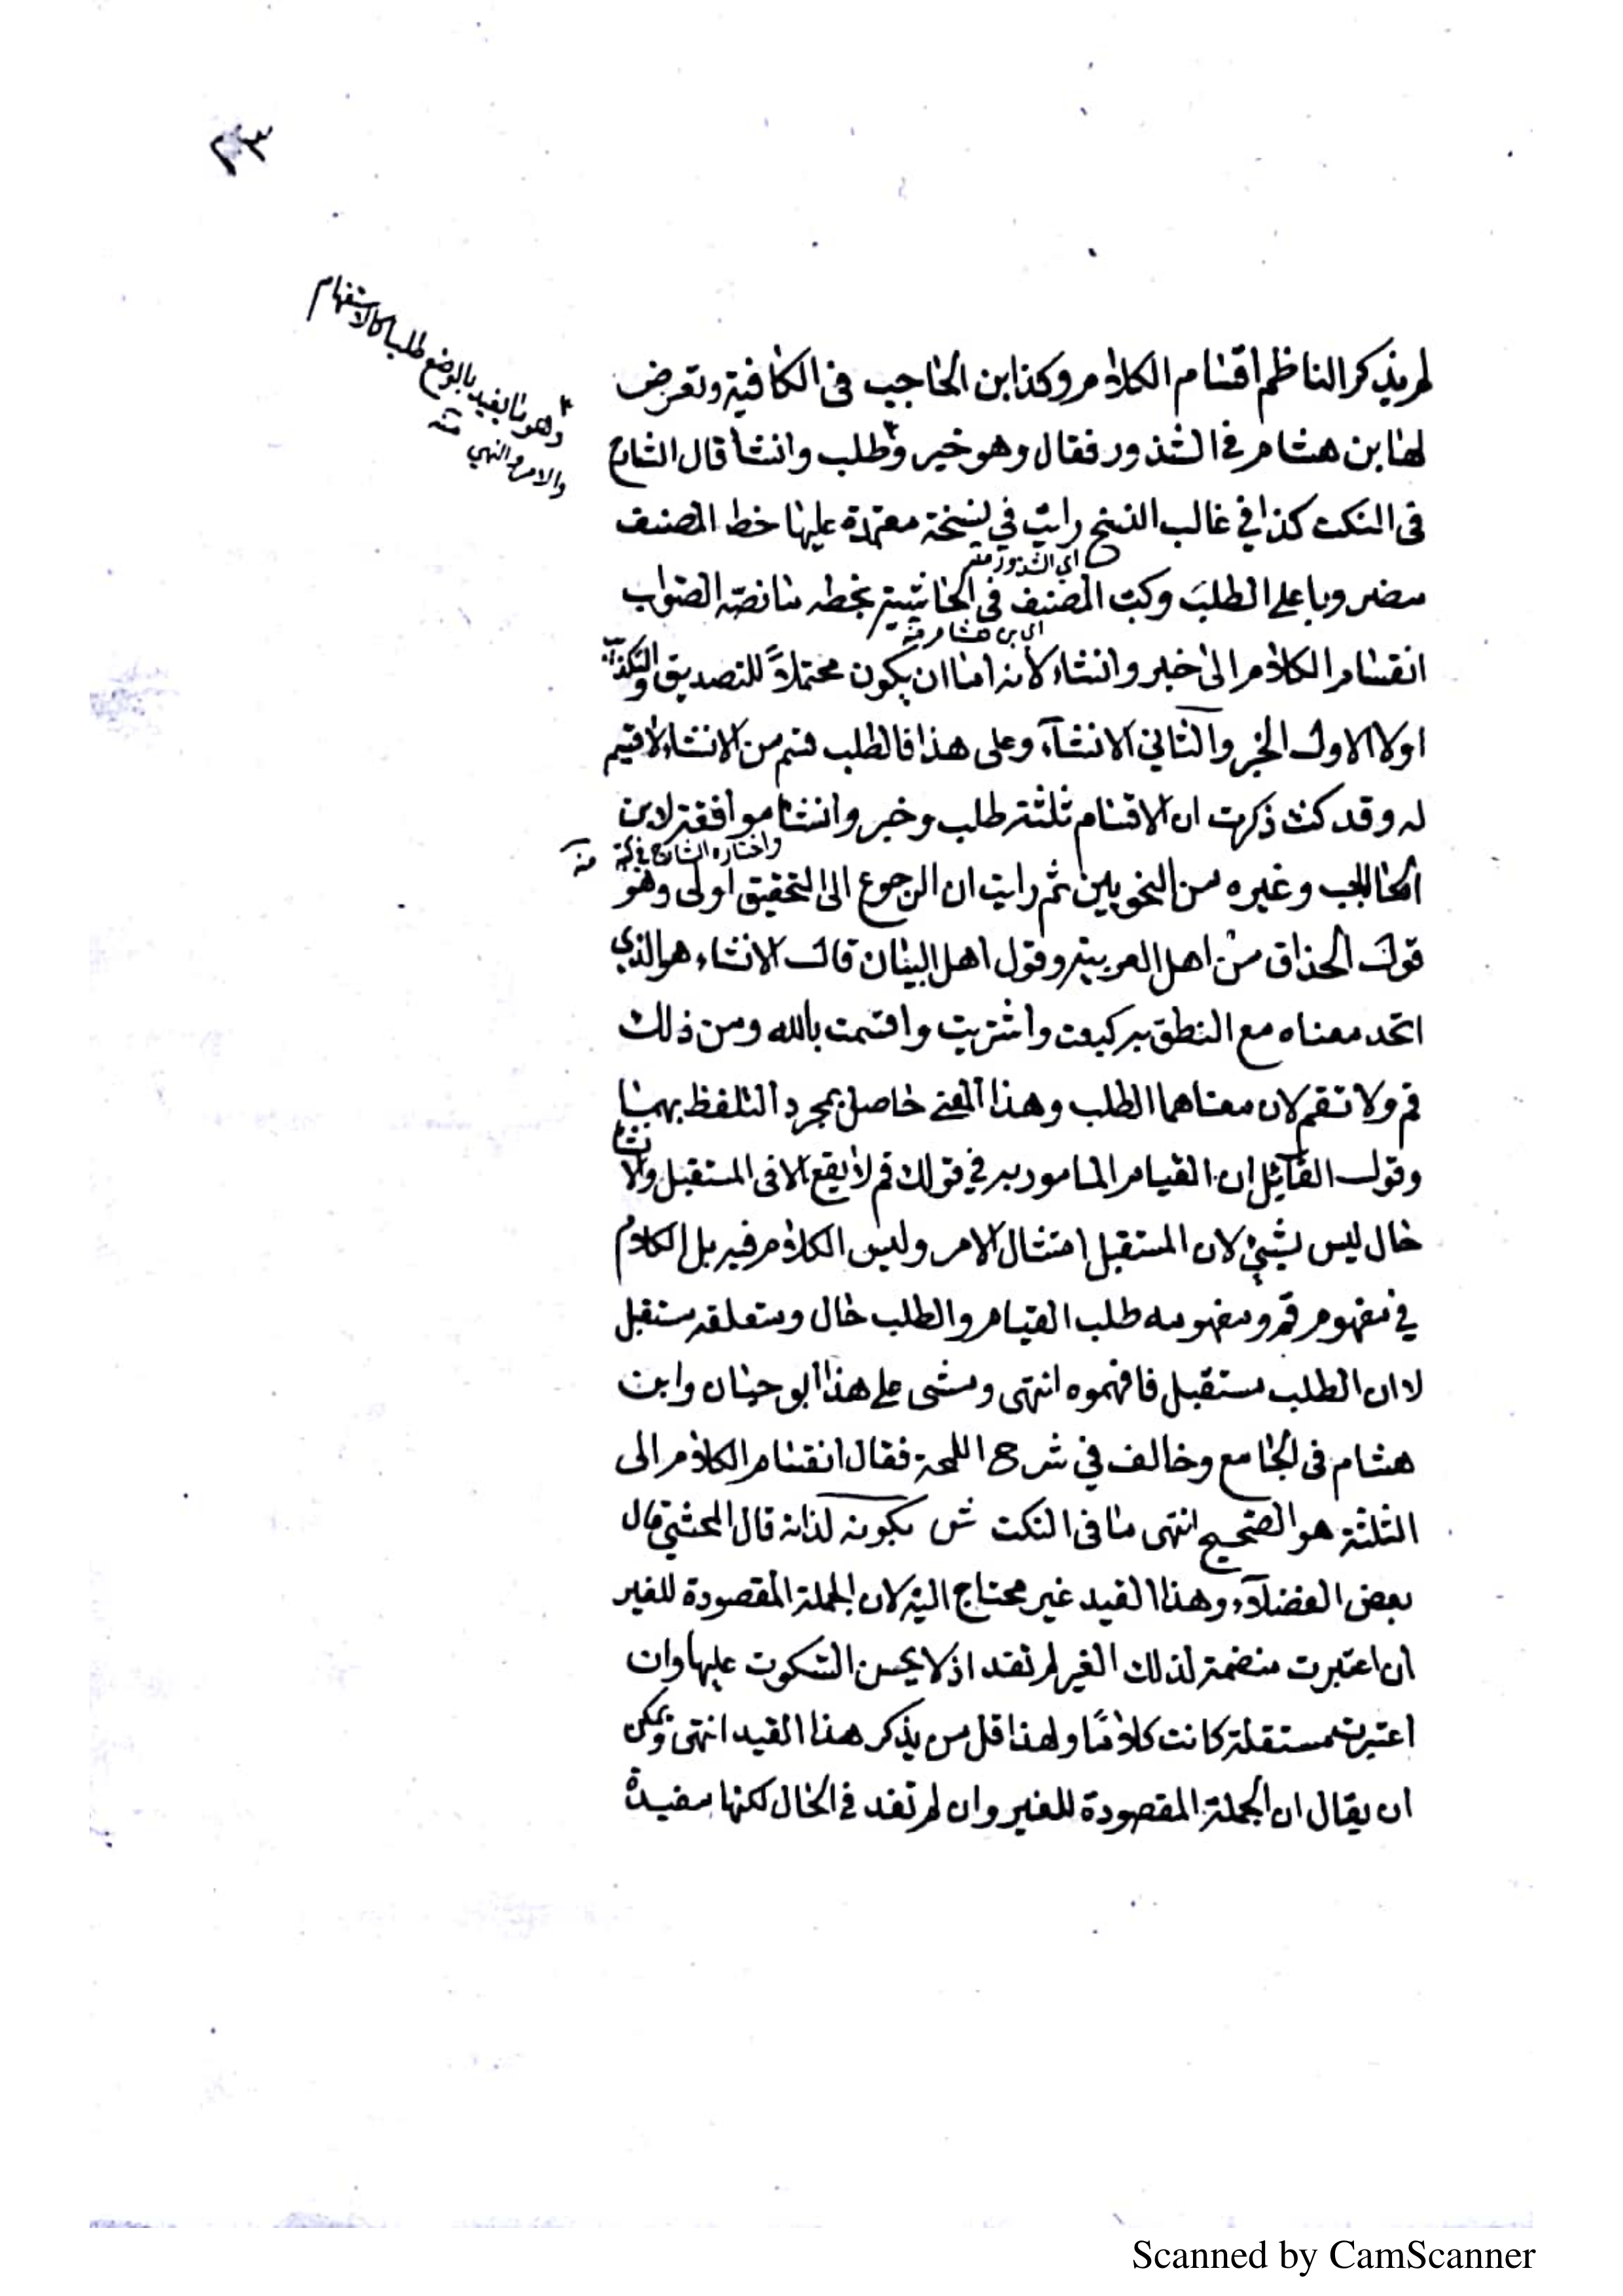 ٢٣
وهو ما يفيد بالوضع طلبا كالاستفهام
والامر والنهي منه
لم يذكر الناظم اقسام الكلام وكذا ابن الحاجب فى الكافية وتعرض
لها بن هشام في الشذور فقال وهو خبر وطلب وانشا قال الشارح
فى النكت كذا في غالب النسخ رايت في نسخة معتمدة عليها خط المصنف
اي الشذور منه
مضروبا على الطلب وكتب المصنف فى الحاشية بخطه ما نصه الصواب
اي بن هشام منه
انقسام الكلام الى خبر وانشاء لانه اما ان يكون محتملاً للتصديق والتكذيب
اولا الاول الخبر والثاني الانشآء وعلى هذا فالطلب قسم من الانشاء لا قسيم
له وقد كنت ذكرت ان الاقسام ثلثة طلب وخبر وانشا موافقة لابن
واختاره الشارح في منه
الحاجب وغيره من النحويين ثم رايت ان الرجوع الى التحقيق اولى وهو
قول الحذاق من اهل العربية وقول اهل البيان قال الانشاء هو الذي
اتحد معناه مع النطق به كبعت واشتريت واقسمت بالله ومن ذلك
قم ولا تقم لان معناهما الطلب وهذا المعنى حاصل بمجرد التلفظ بهما
وقول القآئل ان القيام المامور به في قولك قم لا يقع الا فى المستقبل والانشا
حال ليس بشيئ لان المستقبل امتثال الامر وليس الكلام فيه بل الكلام
في مفهوم قم ومفهومه طلب القيام والطلب حال ومتعلقه مستقبل
لا ان الطلب مستقبل فافهموه انتهى ومشى على هذا ابو حيان وابن
هشام فى الجامع وخالف في شرح اللمحة فقال انقسام الكلام الى
الثلثة هو الصحيح انتهى ما فى النكت ش بكونه لذاته قال المحشي قال
بعض الفضلآء وهذا القيد غير محتاج اليه لان الجملة المقصودة للغير
ان اعتبرت منضمة لذلك الغير لم تفد اذ لا يحسن السكوت عليها وان
اعتبرت مستقلة كانت كلامًا ولهذا قل من يذكر هذا القيد انتهى ويمكن
ان يقال ان الجملة المقصودة للغير وان لم تفد في الحال لكنها مفيدة
Scanned by CamScanner